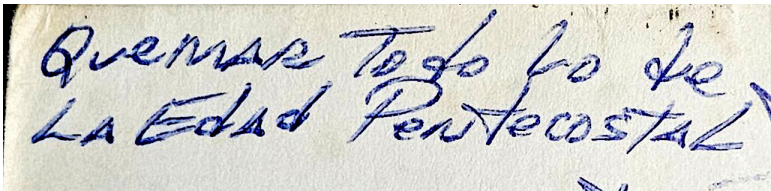 Quemar Todo lo de
LA Edad Pentecostal